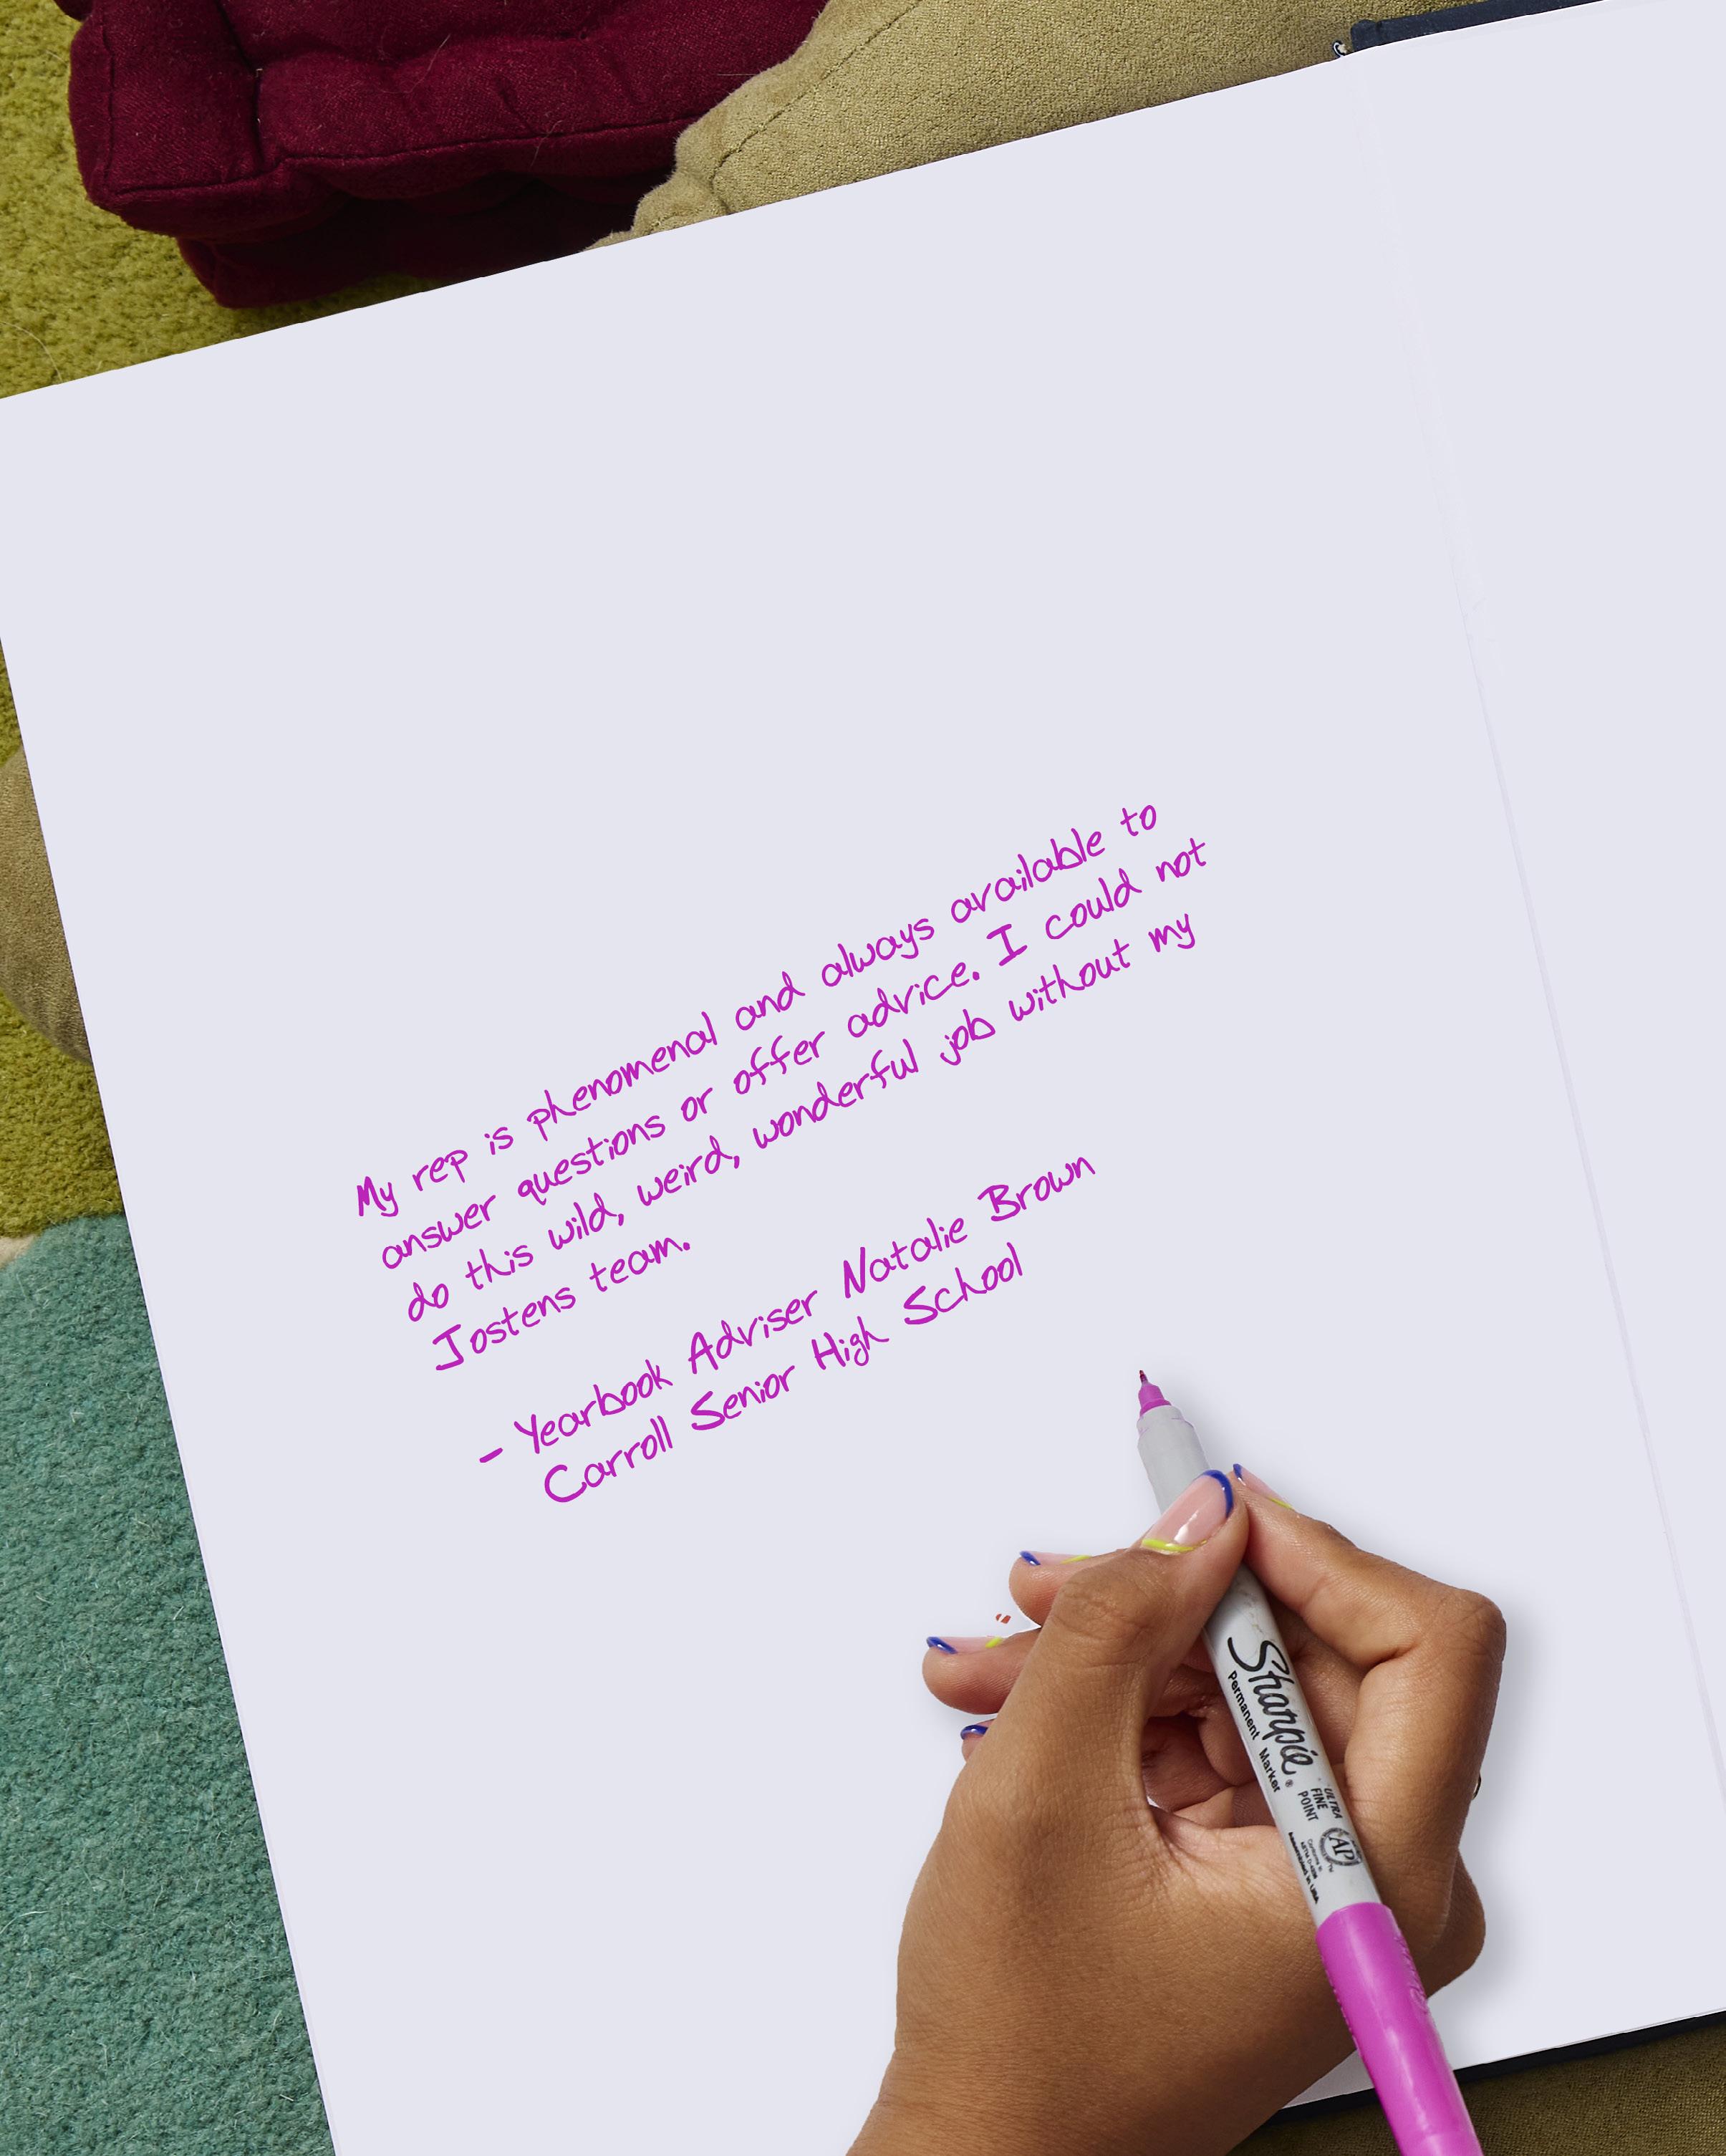 My rep is phenomenal and always available to
answer questions or offer advice. I could not
do this wild, weird, wonderful job without my
Jostens team.
- Yearbook Adviser Natalie Brown
Carroll Senior High School
Sharpie®
Permanent Marker
ULTRA
FINE
POINT
AP